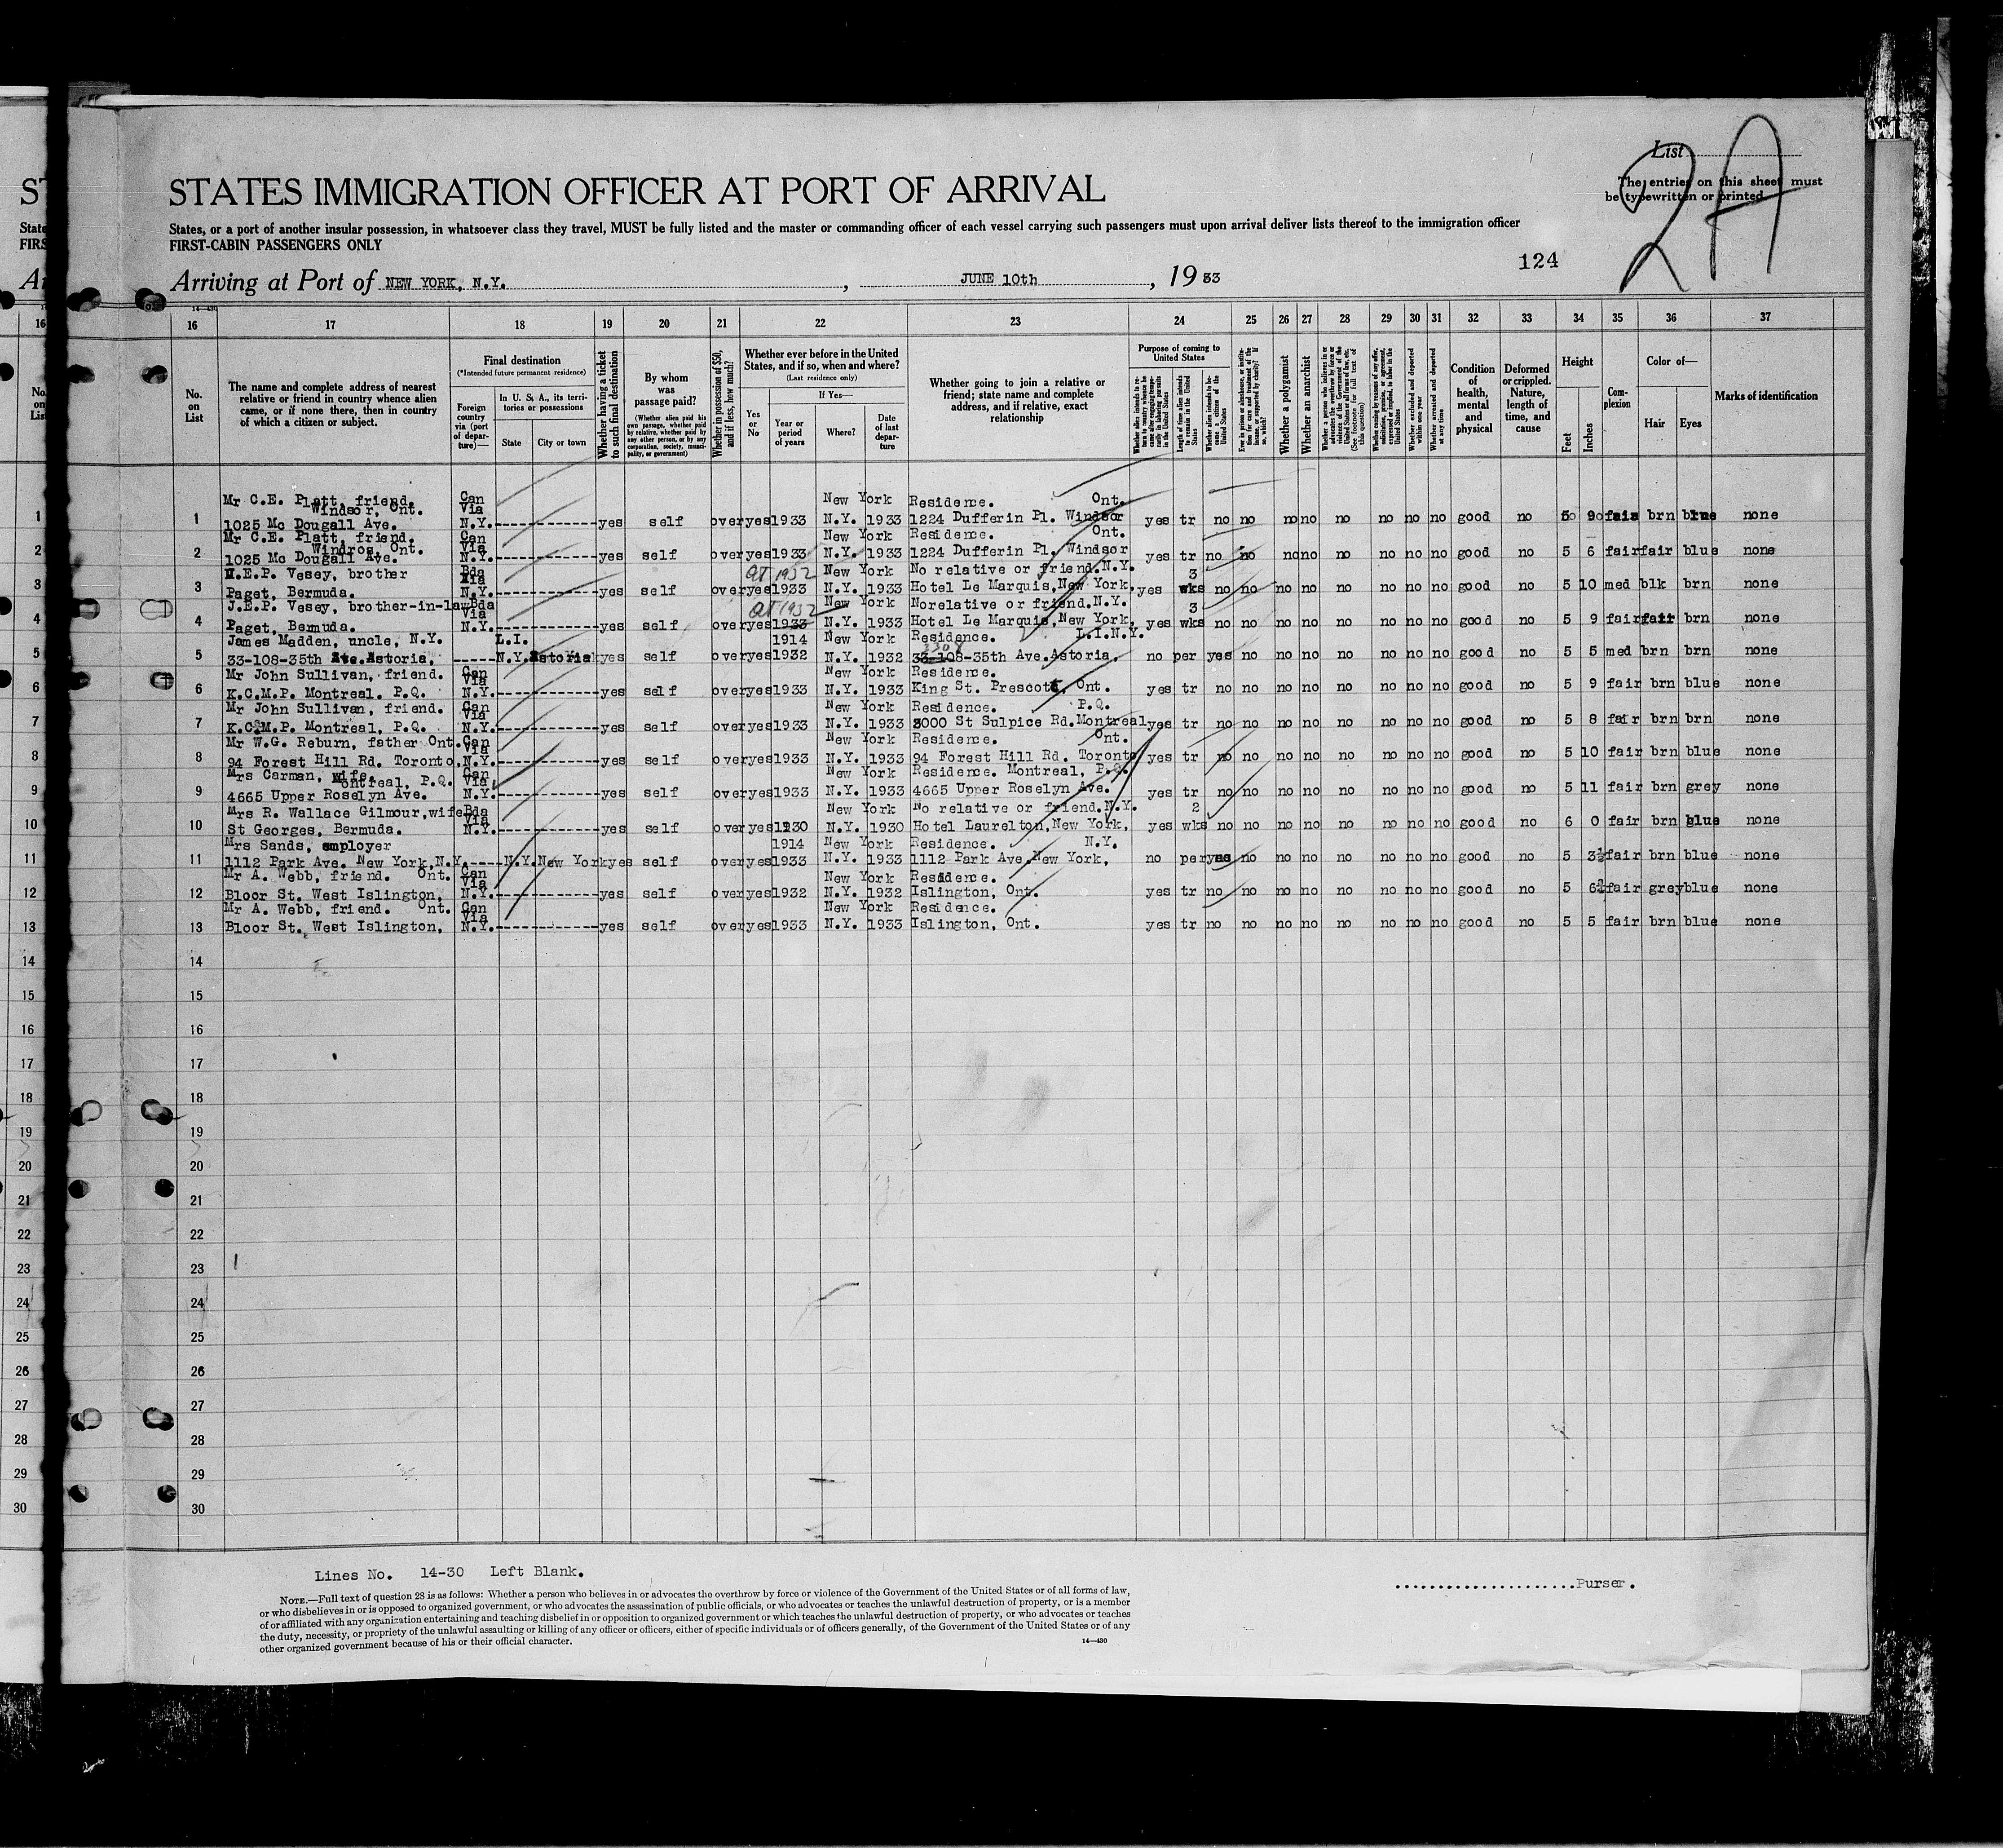 List
2A
The entries on this sheet must
be typewritten or printed
STATES IMMIGRATION OFFICER AT PORT OF ARRIVAL
States, or a port of another insular possession, in whatsoever class they travel, MUST be fully listed and the master or commanding officer of each vessel carrying such passengers must upon arrival deliver lists thereof to the immigration officer
FIRST-CABIN PASSENGERS ONLY
124
Arriving at Port of NEW YORK, N.Y. , JUNE 10th , 1933
14—430
16 17 18 19 20 21 22 23 24 25 26 27 28 29 30 31 32 33 34 35 36 37
No. on List
The name and complete address of nearest relative or friend in country whence alien came, or if none there, then in country of which a citizen or subject.
Final destination
(*Intended future permanent residence)
Foreign country via (port of departure)—
In U. S. A., its territories or possessions
State
City or town
Whether having a ticket to such final destination
By whom was passage paid?
(Whether alien paid his own passage, whether paid by relative, whether paid by any other person, or by any corporation, society, municipality, or government)
Whether in possession of $50, and if less, how much?
Whether ever before in the United States, and if so, when and where?
(Last residence only)
If Yes—
Yes or No
Year or period of years
Where?
Date of last departure
Whether going to join a relative or friend; state name and complete address, and if relative, exact relationship
Purpose of coming to United States
Length of time alien intends to remain in the United States
Whether alien intends to become a citizen of the United States
Whether a polygamist
Whether an anarchist
(See footnote for full text of this question)
Whether excluded and deported within one year
Whether arrested and deported at any time
Condition of health, mental and physical
Deformed or crippled. Nature, length of time, and cause
Height
Feet
Inches
Complexion
Color of—
Hair
Eyes
Marks of identification
Mr C.E. Platt, friend. Can New York Residence. Ont.
Windsor, Ont. Via
1 1025 Mc Dougall Ave. N.Y. yes self over yes 1933 N.Y. 1933 1224 Dufferin Pl. Windsor yes tr no no no no no no no no good no 5 9 fair brn blue none
Mr C.E. Platt, friend. Can New York Residence. Ont.
Windros, Ont. Via
2 1025 Mc Dougall Ave. N.Y. yes self over yes 1933 N.Y. 1933 1224 Dufferin Pl. Windsor yes tr no no no no no no no no good no 5 6 fair fair blue none
.E.P. Vesey, brother Bda Via 1932 New York No relative or friend. N.Y. 3
3 Paget, Bermuda. N.Y. yes self over yes 1933 N.Y. 1933 Hotel Le Marquis, New York, yes wks no no no no no no no no good no 5 10 med blk brn none
J.E.P. Vesey, brother-in-law Bda Via 1932 New York Norelative or friend. N.Y. 3
4 Paget, Bermuda. N.Y. yes self over yes 1933 N.Y. 1933 Hotel Le Marquis, New York, yes wks no no no no no no no no good no 5 9 fair fair brn none
James Madden, uncle, N.Y. L.I. 1914 New York Residence. L.I.N.Y.
5 33-108-35th Ave. Astoria. N.Y. Astoria yes self over yes 1932 N.Y. 1932 33-108-35th Ave. Astoria. no per yes no no no no no no no good no 5 5 med brn brn none
Mr John Sullivan, friend. Can Via New York Residence.
6 K.C.M.P. Montreal. P.Q. N.Y. yes self over yes 1933 N.Y. 1933 King St. Prescott, Ont. yes tr no no no no no no no no good no 5 9 fair brn blue none
Mr John Sullivan, friend. Can Via New York Residence. P.Q.
7 K.C.M.P. Montreal, P.Q. N.Y. yes self over yes 1933 N.Y. 1933 3000 St Sulpice Rd. Montreal yes tr no no no no no no no no good no 5 8 fair brn brn none
Mr W.G. Reburn, father Ont. Can Via New York Residence. Ont.
8 94 Forest Hill Rd. Toronto, N.Y. yes self over yes 1933 N.Y. 1933 94 Forest Hill Rd. Toronto yes tr no no no no no no no no good no 5 10 fair brn blue none
Mrs Carman, wife. Can New York Residence. Montreal, P.Q.
Montreal, P.Q. Via
9 4665 Upper Roselyn Ave. N.Y. yes self over yes 1933 N.Y. 1933 4665 Upper Roselyn Ave. yes tr no no no no no no no no good no 5 11 fair brn grey none
Mrs R. Wallace Gilmour, wife Bda Via New York No relative or friend. N.Y. 2
10 St Georges, Bermuda. N.Y. yes self over yes 1930 N.Y. 1930 Hotel Laurelton, New York, yes wks no no no no no no no no good no 6 0 fair brn blue none
Mrs Sands, employer 1914 New York Residence. N.Y.
11 1112 Park Ave. New York, N.Y. N.Y. New York yes self over yes 1933 N.Y. 1933 1112 Park Ave, New York, no per yes no no no no no no no good no 5 3½ fair brn blue none
Mr A. Webb, friend. Ont. Can Via New York Residence.
12 Bloor St. West Islington, N.Y. yes self over yes 1932 N.Y. 1932 Islington, Ont. yes tr no no no no no no no no good no 5 6 fair grey blue none
Mr A. Webb, friend. Ont. Can Via New York Residence.
13 Bloor St. West Islington, N.Y. yes self over yes 1933 N.Y. 1933 Islington, Ont. yes tr no no no no no no no no good no 5 5 fair brn blue none
14
15
16
17
18
19
20
21
22
23
24
25
26
27
28
29
30
Lines No. 14-30 Left Blank.
Purser.
NOTE.—Full text of question 28 is as follows: Whether a person who believes in or advocates the overthrow by force or violence of the Government of the United States or of all forms of law,
or who disbelieves in or is opposed to organized government, or who advocates the assassination of public officials, or who advocates or teaches the unlawful destruction of property, or is a member
of or affiliated with any organization entertaining and teaching disbelief in or opposition to organized government or which teaches the unlawful destruction of property, or who advocates or teaches
the duty, necessity, or propriety of the unlawful assaulting or killing of any officer or officers, either of specific individuals or of officers generally, of the Government of the United States or of any
other organized government because of his or their official character.
14—430